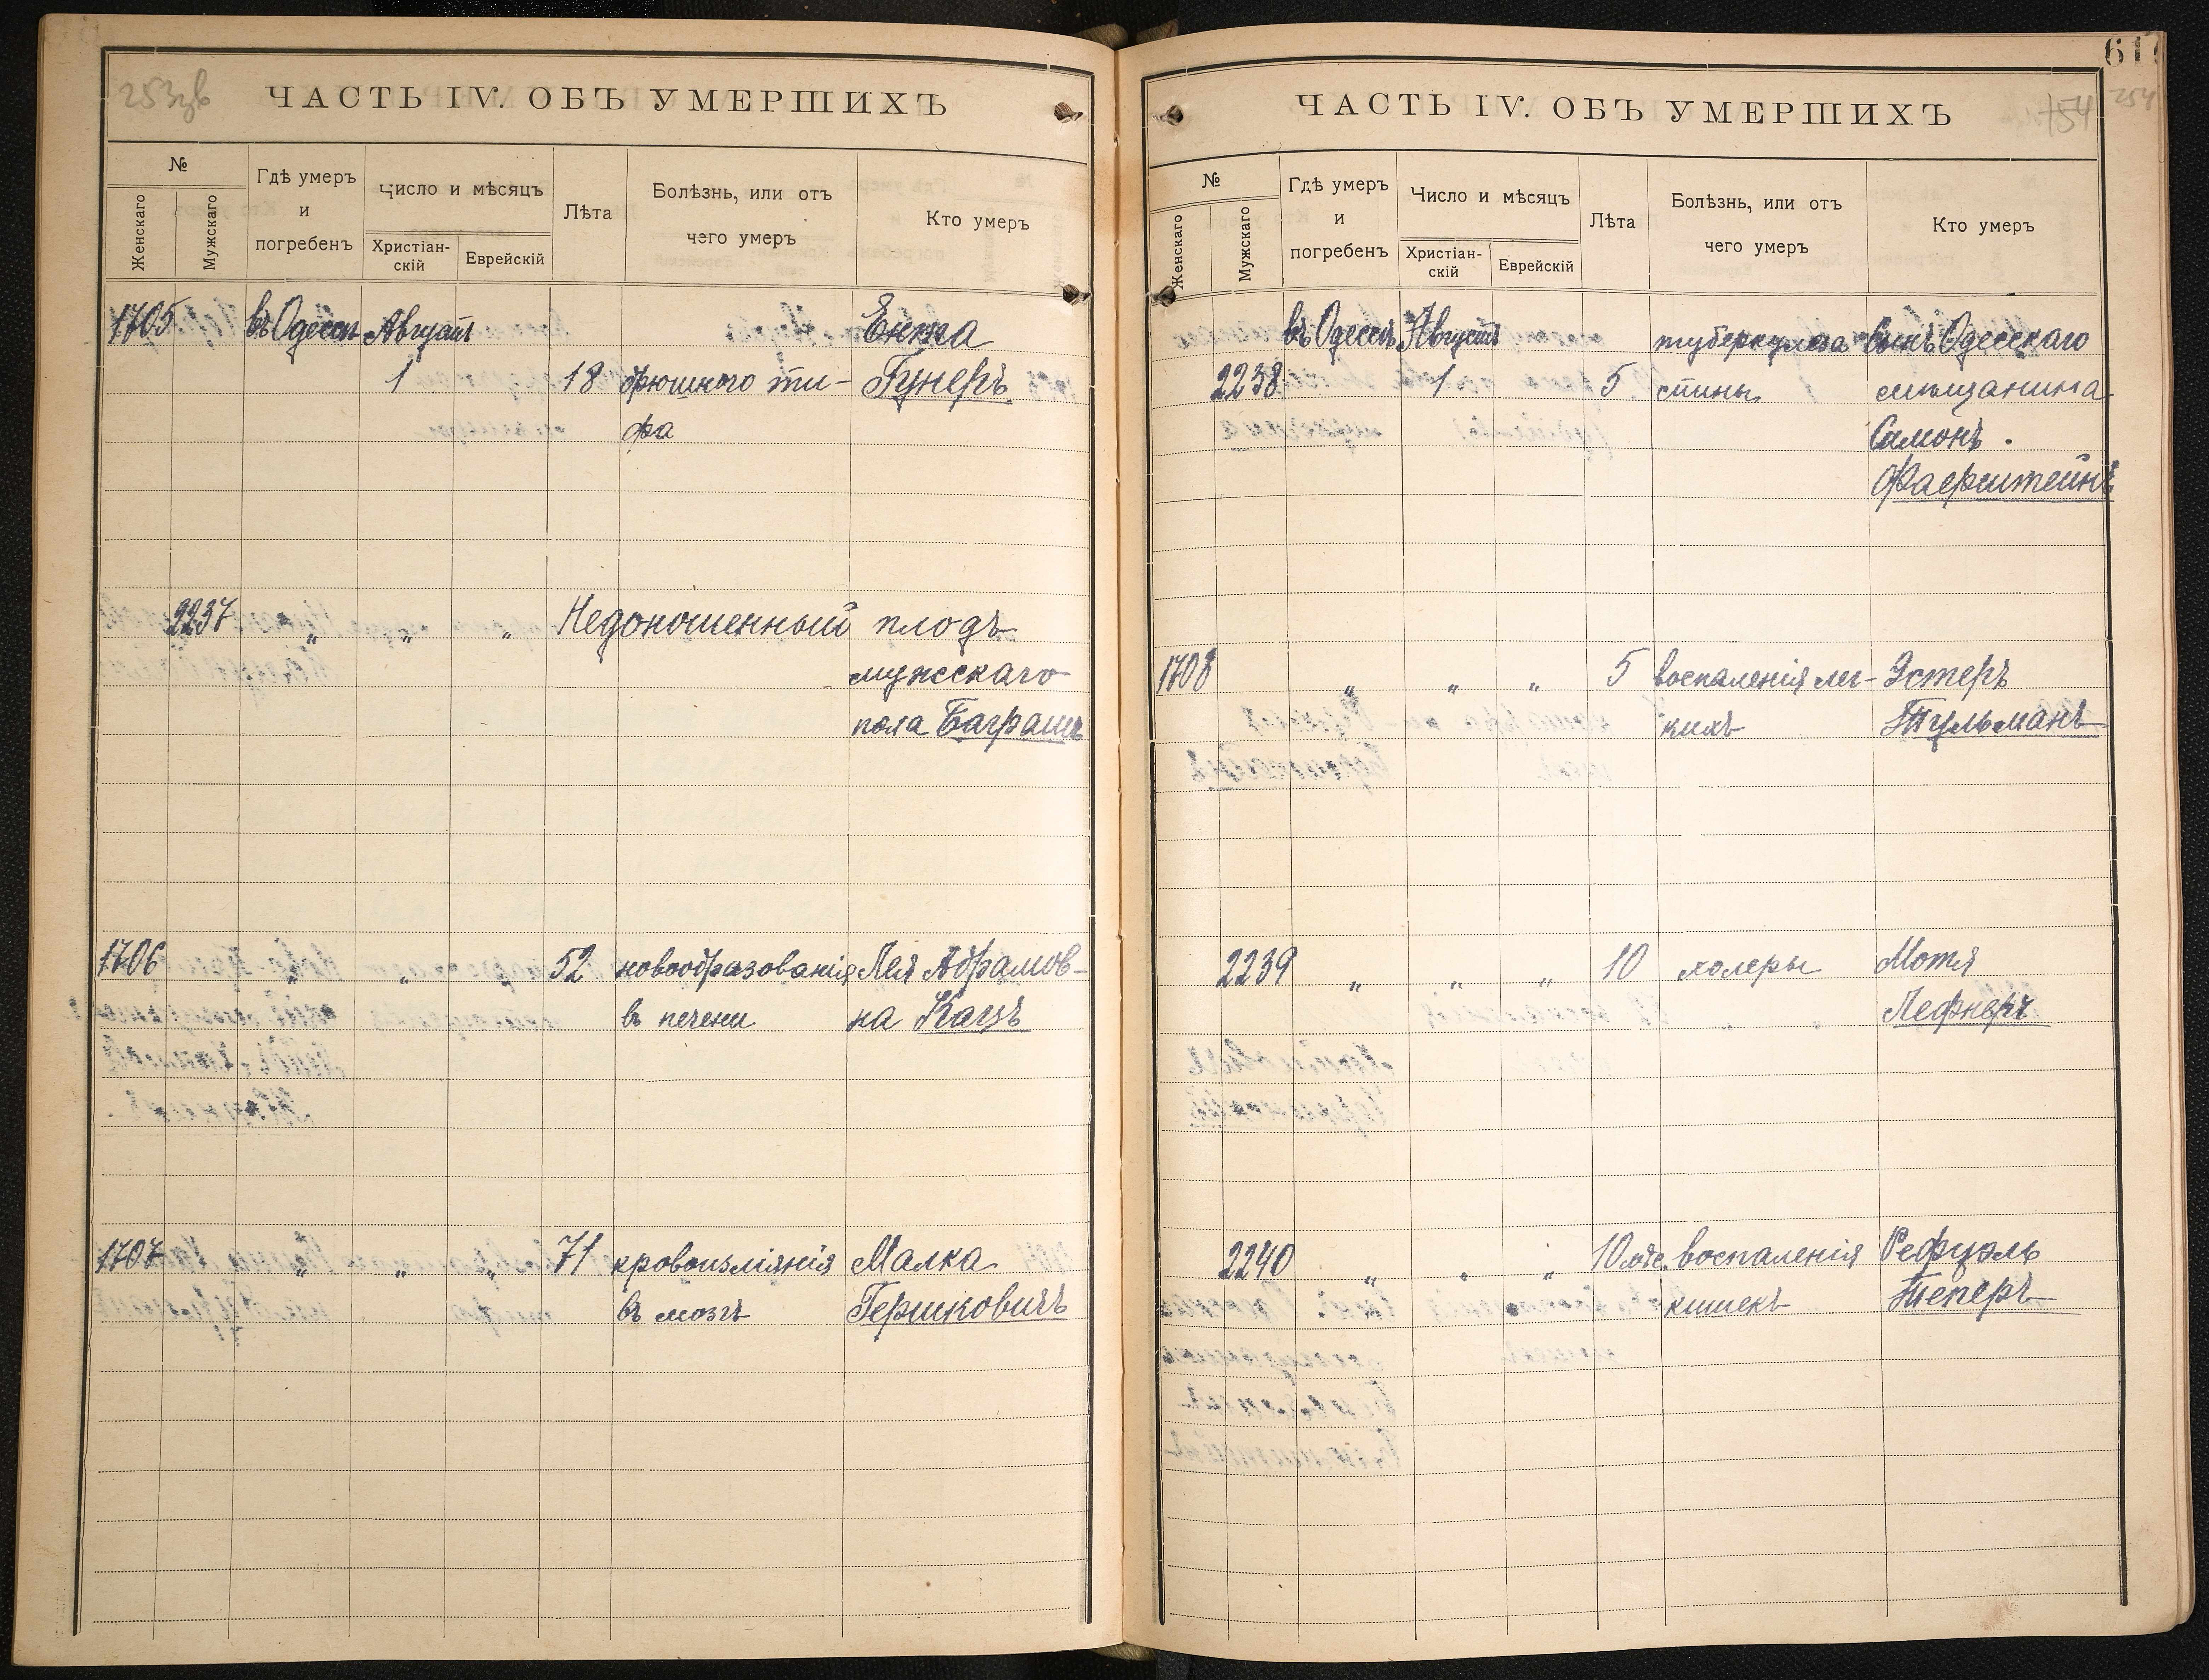 253зв
ЧАСТЬ IV. ОБЪ УМЕРШИХЪ
№
Женскаго
Мужскаго
Гдѣ умеръ
и
погребенъ
Число и мѣсяцъ
Христіан-
скій
Еврейскій
Лѣта
Болѣзнь, или отъ
чего умеръ
Кто умеръ
1705 въ Одессѣ Августъ Ента
1 18 брюшного ти- Гунеръ
фа
2237 " " " Недоношенный плодъ
мужскаго
пола Баграшъ
1706 " " 52 новообразованія Лея Абрамов-
въ печени на Кацъ
1707 " " " 71 кровоизліянія Малка
въ мозгъ Гершковичъ
617
254
ЧАСТЬ IV. ОБЪ УМЕРШИХЪ
№
Женскаго
Мужскаго
Гдѣ умеръ
и
погребенъ
Число и мѣсяцъ
Христіан-
скій
Еврейскій
Лѣта
Болѣзнь, или отъ
чего умеръ
Кто умеръ
въ Одессѣ Августъ туберкулеза Сынъ Одесскаго
2238 1 5 спины мѣщанина
Самонъ
Фаерштейнъ
1708 " " " 5 воспаленія лег- Эстеръ
кихъ Тульманъ
2239 " " " 10 холеры Мотя
Лефнеръ
2240 " " " 10 мѣс. воспаленія Рефуэль
кишекъ Теперъ